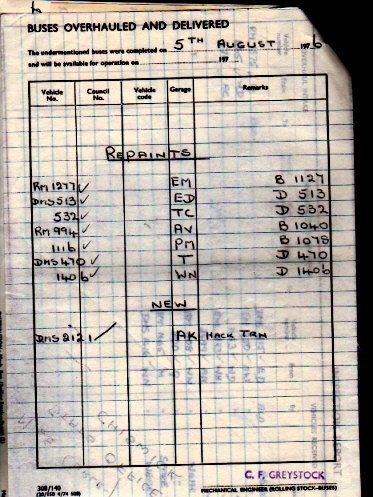 BUSES OVERHAULED AND DELIVERED
The undermentioned buses were completed on 5TH AUGUST 1976
and will be available for operation on 197
Vehicle No. Council No. Vehicle code Garage Remarks
REPAINTS
RM 1277 ✓ EM B 1127
DMS 513 ✓ ED D 513
532 ✓ TC D 532
RM 994 ✓ AV B 1040
1116 ✓ PM B 1078
DMS 470 ✓ T D 470
1406 ✓ WN D 1406
NEW
DMS 2121 ✓ AK HACK TRN
CHISWICK
OFFICE
308/140
C. F. GREYSTOCK
MECHANICAL ENGINEER (ROLLING STOCK—BUSES)